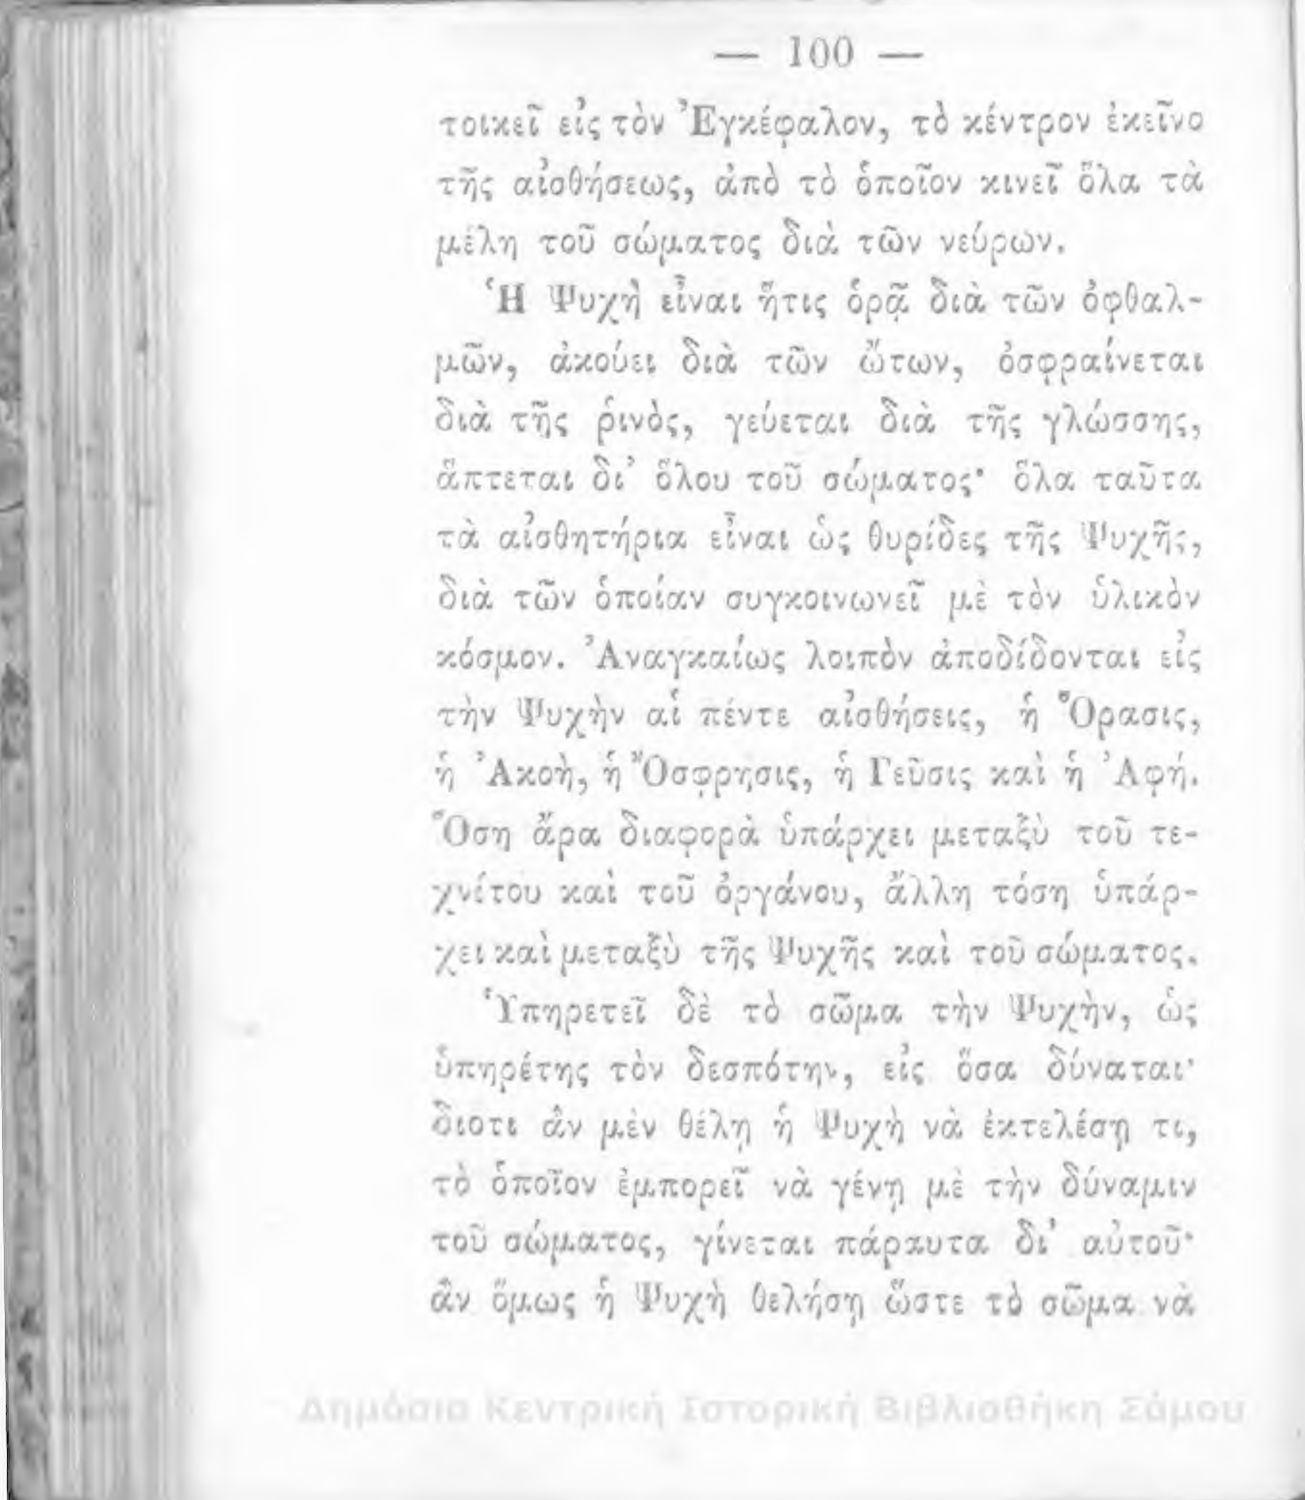 — 100 —
τοικεῖ εἰς τὸν Ἐγκέφαλον, τὸ κέντρον ἐκεῖνο
τῆς αἰσθήσεως, ἀπὸ τὸ ὁποῖον κινεῖ ὅλα τὰ
μέλη τοῦ σώματος διὰ τῶν νεύρων.
Ἡ Ψυχὴ εἶναι ἥτις ὁρᾷ διὰ τῶν ὀφθαλ-
μῶν, ἀκούει διὰ τῶν ὤτων, ὀσφραίνεται
διὰ τῆς ῥινὸς, γεύεται διὰ τῆς γλώσσης,
ἅπτεται δι’ ὅλου τοῦ σώματος· ὅλα ταῦτα
τὰ αἰσθητήρια εἶναι ὡς θυρίδες τῆς Ψυχῆς,
διὰ τῶν ὁποίαν συγκοινωνεῖ μὲ τὸν ὑλικὸν
κόσμον. Ἀναγκαίως λοιπὸν ἀποδίδονται εἰς
τὴν Ψυχὴν αἱ πέντε αἰσθήσεις, ἡ Ὅρασις,
ἡ Ἀκοὴ, ἡ Ὄσφρησις, ἡ Γεῦσις καὶ ἡ Ἀφή.
Ὅση ἄρα διαφορὰ ὑπάρχει μεταξὺ τοῦ τε-
χνίτου καὶ τοῦ ὀργάνου, ἄλλη τόση ὑπάρ-
χει καὶ μεταξὺ τῆς Ψυχῆς καὶ τοῦ σώματος.
Ὑπηρετεῖ δὲ τὸ σῶμα τὴν Ψυχὴν, ὡς
ὑπηρέτης τὸν δεσπότην, εἰς ὅσα δύναται·
διοτι ἂν μὲν θέλῃ ἡ Ψυχὴ νὰ ἐκτελέσῃ τι,
τὸ ὁποῖον ἐμπορεῖ νὰ γένῃ μὲ τὴν δύναμιν
τοῦ σώματος, γίνεται πάραυτα δι’ αὐτοῦ·
ἂν ὅμως ἡ Ψυχὴ θελήσῃ ὥστε τὸ σῶμα νὰ
Δημόσια Κεντρική Ιστορική Βιβλιοθήκη Σάμου